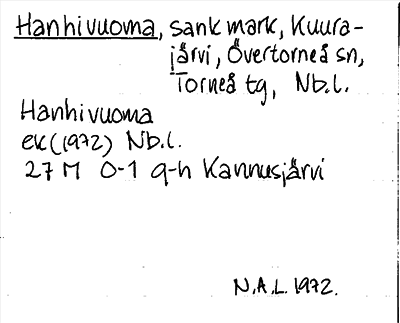 Hanhivuoma, sank mark, Kuura-
järvi, Övertorneå sn,
Torneå tg, Nb.l.
Hanhivuoma
ek (1972) Nb.l.
27 M 0-1 q-h Kannusjärvi
N.A.L. 1972.